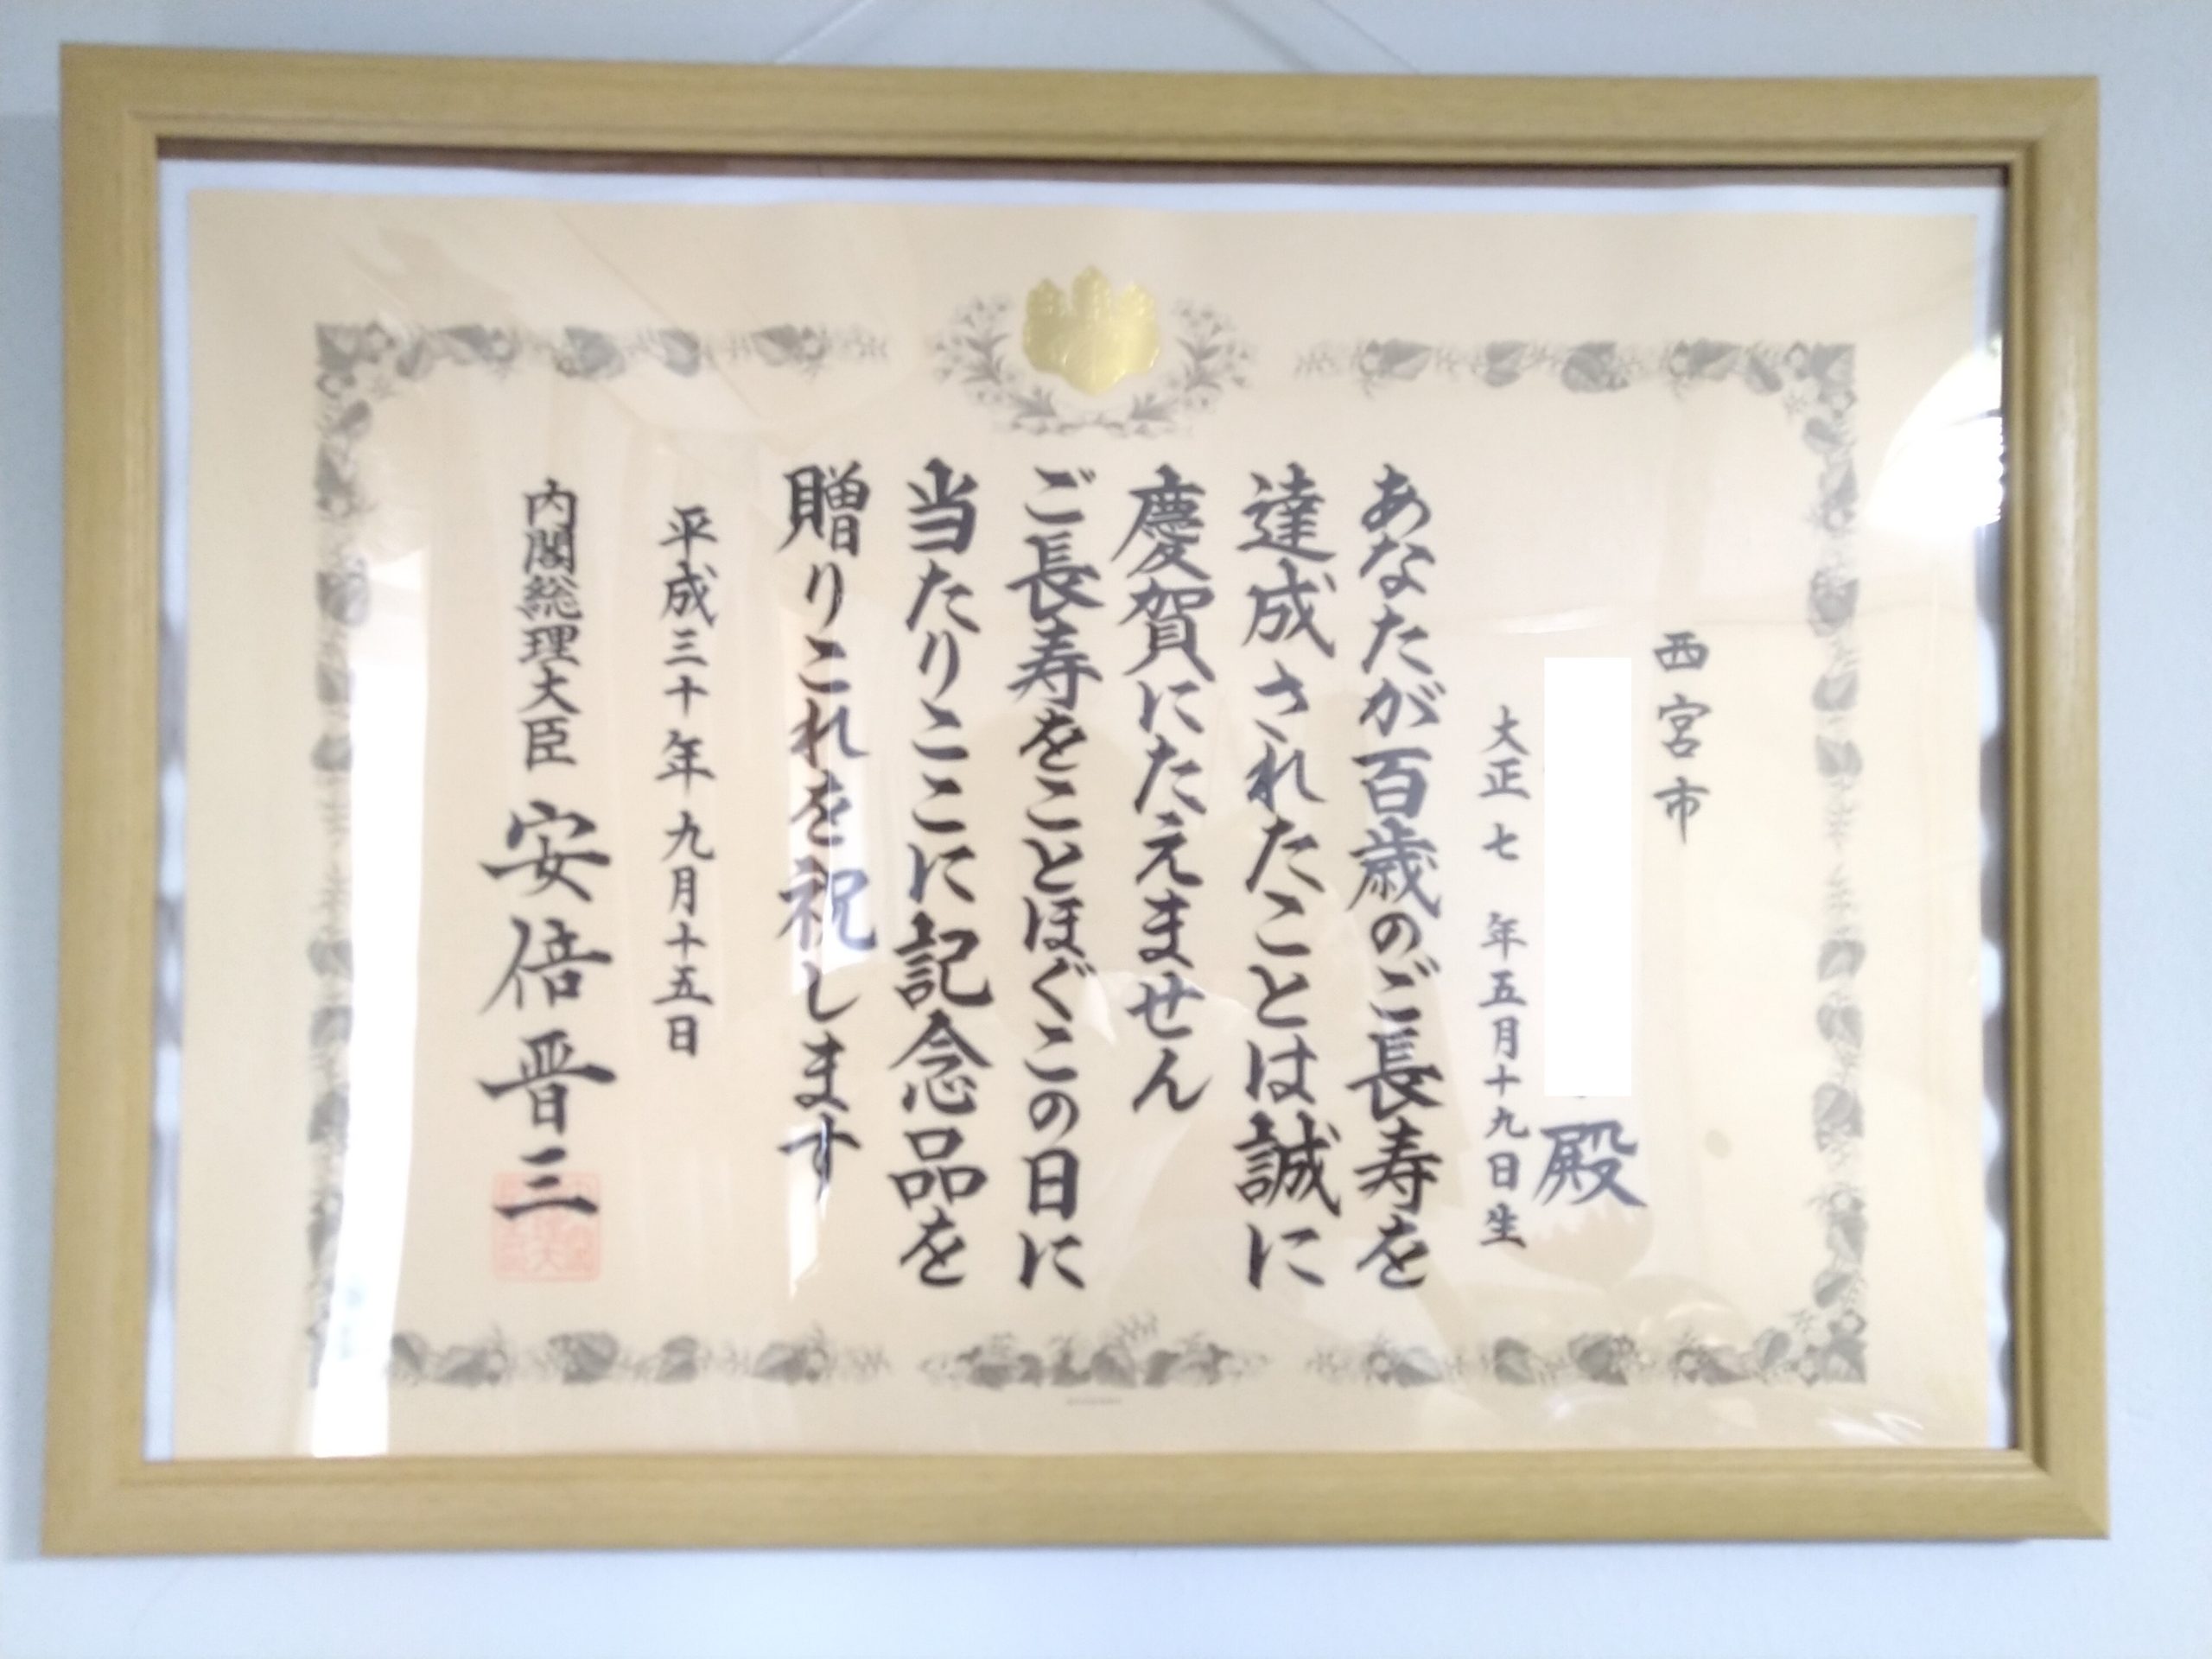 西宮市
殿
大正七年五月十九日生
あなたが百歳のご長寿を
達成されたことは誠に
慶賀にたえません
ご長寿をことほぐこの日に
当たりここに記念品を
贈りこれを祝します
平成三十年九月十五日
内閣総理大臣 安倍晋三